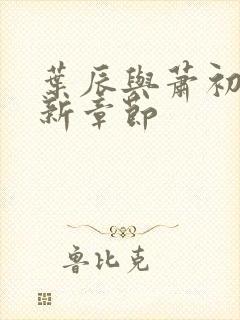 葉辰與蕭初
新章節
魯比克